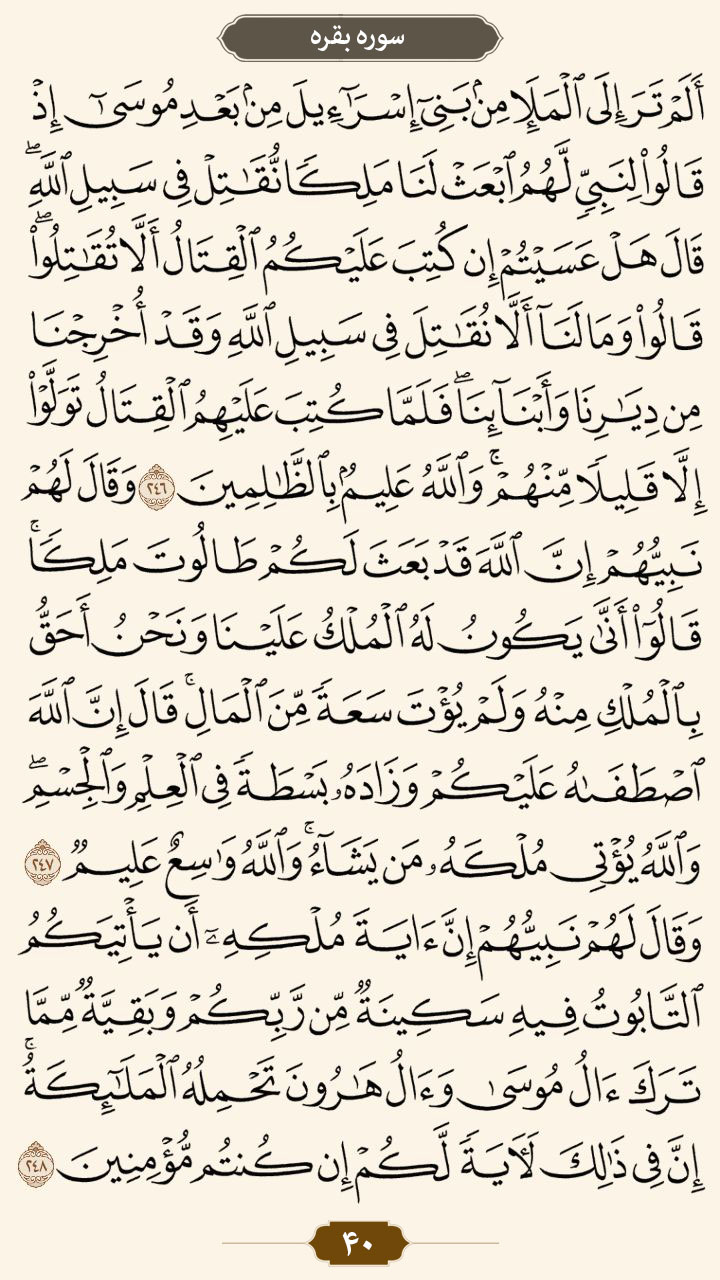 سوره بقره
أَلَمْ تَرَ إِلَى ٱلْمَلَإِ مِنۢ بَنِىٓ إِسْرَٰٓءِيلَ مِنۢ بَعْدِ مُوسَىٰٓ إِذْ
قَالُوا۟ لِنَبِىٍّ لَّهُمُ ٱبْعَثْ لَنَا مَلِكًا نُّقَٰتِلْ فِى سَبِيلِ ٱللَّهِ ۖ
قَالَ هَلْ عَسَيْتُمْ إِن كُتِبَ عَلَيْكُمُ ٱلْقِتَالُ أَلَّا تُقَٰتِلُوا۟ ۖ
قَالُوا۟ وَمَا لَنَآ أَلَّا نُقَٰتِلَ فِى سَبِيلِ ٱللَّهِ وَقَدْ أُخْرِجْنَا
مِن دِيَٰرِنَا وَأَبْنَآئِنَا ۖ فَلَمَّا كُتِبَ عَلَيْهِمُ ٱلْقِتَالُ تَوَلَّوْا۟
إِلَّا قَلِيلًا مِّنْهُمْ ۗ وَٱللَّهُ عَلِيمٌۢ بِٱلظَّٰلِمِينَ ٢٤٦ وَقَالَ لَهُمْ
نَبِيُّهُمْ إِنَّ ٱللَّهَ قَدْ بَعَثَ لَكُمْ طَالُوتَ مَلِكًا ۚ
قَالُوٓا۟ أَنَّىٰ يَكُونُ لَهُ ٱلْمُلْكُ عَلَيْنَا وَنَحْنُ أَحَقُّ
بِٱلْمُلْكِ مِنْهُ وَلَمْ يُؤْتَ سَعَةً مِّنَ ٱلْمَالِ ۚ قَالَ إِنَّ ٱللَّهَ
ٱصْطَفَىٰهُ عَلَيْكُمْ وَزَادَهُۥ بَسْطَةً فِى ٱلْعِلْمِ وَٱلْجِسْمِ ۖ
وَٱللَّهُ يُؤْتِى مُلْكَهُۥ مَن يَشَآءُ ۚ وَٱللَّهُ وَٰسِعٌ عَلِيمٌ ٢٤٧
وَقَالَ لَهُمْ نَبِيُّهُمْ إِنَّ ءَايَةَ مُلْكِهِۦٓ أَن يَأْتِيَكُمُ
ٱلتَّابُوتُ فِيهِ سَكِينَةٌ مِّن رَّبِّكُمْ وَبَقِيَّةٌ مِّمَّا
تَرَكَ ءَالُ مُوسَىٰ وَءَالُ هَٰرُونَ تَحْمِلُهُ ٱلْمَلَٰٓئِكَةُ ۚ
إِنَّ فِى ذَٰلِكَ لَءَايَةً لَّكُمْ إِن كُنتُم مُّؤْمِنِينَ ٢٤٨
۴۰